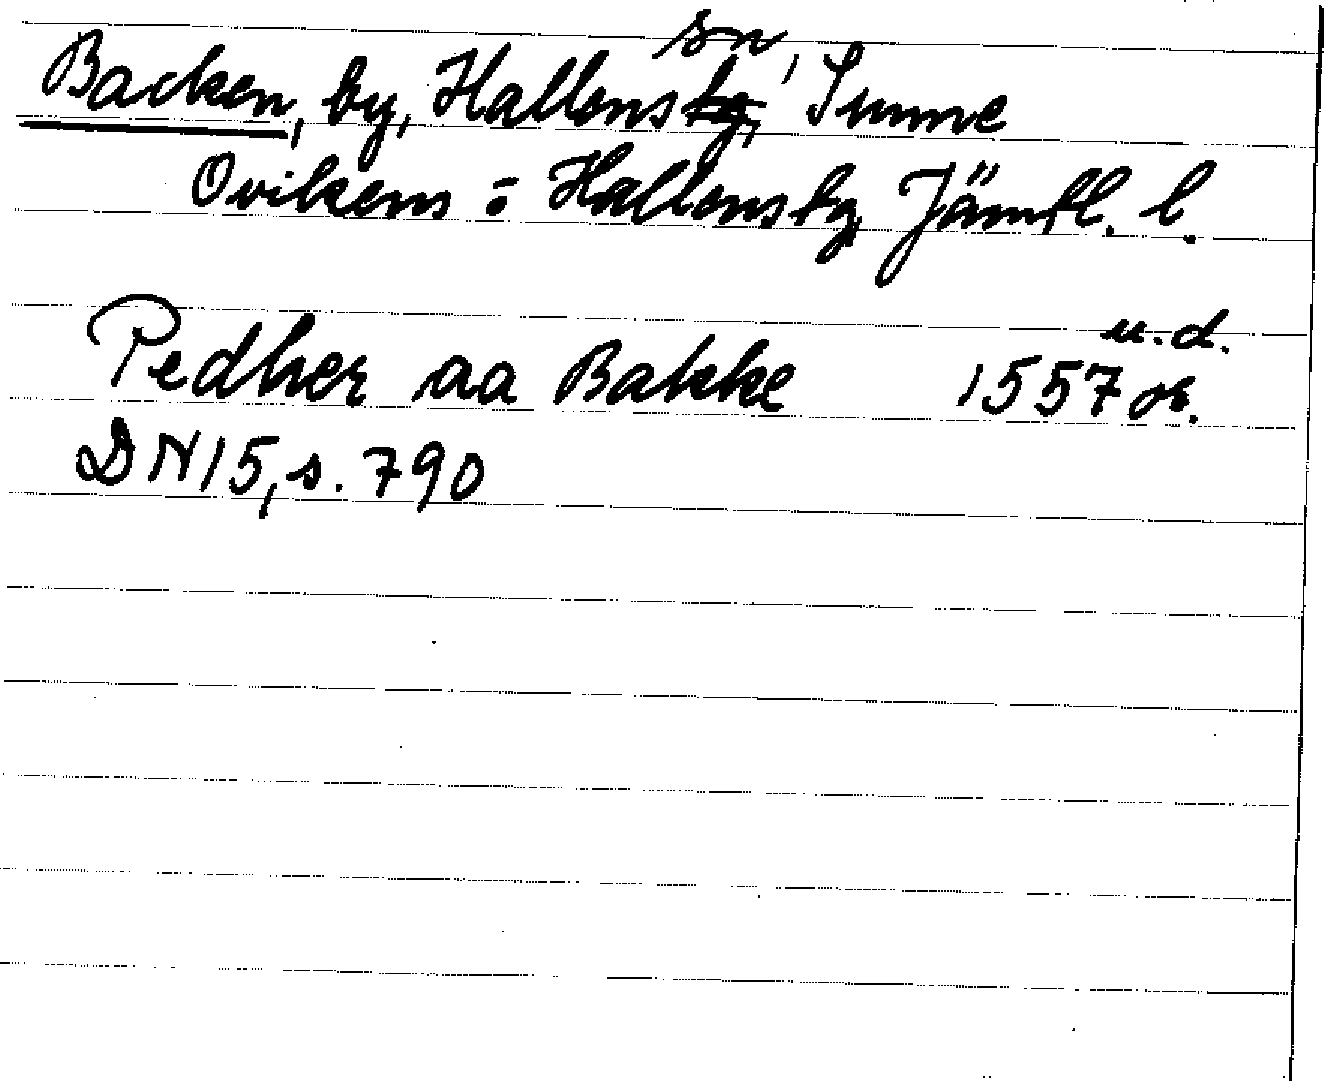 Backen, by, Hallens sn, Sunne
Ovikens o Hallens tg, Jämtl. l.
Pedher aa Bakke 1557 u.d.
DN 15, s. 790